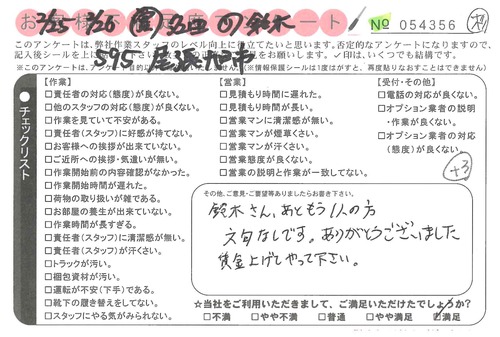 No 054356
このアンケートは、弊社作業スタッフのレベル向上に役立てたいと思います。否定的なアンケートになりますので、
※このアンケートは、
【作業】
□責任者の対応(態度)が良くない。
□他のスタッフの対応(態度)が良くない。
□作業を見ていて不安がある。
□責任者(スタッフ)に好感が持てない。
□お客様への挨拶が出来ていない。
□ご近所への挨拶・気遣いが無い。
□作業開始前の内容確認がなかった。
□作業開始時間が遅れた。
□荷物の取り扱いが雑である。
□お部屋の養生が出来ていない。
□作業時間が長すぎる。
□責任者(スタッフ)に清潔感が無い。
□責任者(スタッフ)が汗くさい。
□トラックが汚い。
□梱包資材が汚い。
□運転が不安(下手)である。
□靴下の履き替えをしてない。
□スタッフにやる気がみられない。
【営業】
□見積もり時間に遅れた。
□見積もり時間が長い。
□営業マンに清潔感が無い。
□営業マンが煙草くさい。
□営業マンが汗くさい。
□営業態度が良くない。
□営業の説明と作業が一致してない。
【受付・その他】
□電話の対応が良くない。
□オプション業者の説明
・作業が良くない。
□オプション業者の対応
(態度)が良くない。
+3
チェックリスト
その他、ご意見・ご要望等ありましたらお書き下さい。
鈴木さん、あともう1人の方
文句なしです。ありがとうございました
賃金上げてやって下さい。
☆当社をご利用いただきまして、ご満足いただけたでしょうか?
□不満 □やや不満 □普通 □やや満足 □満足